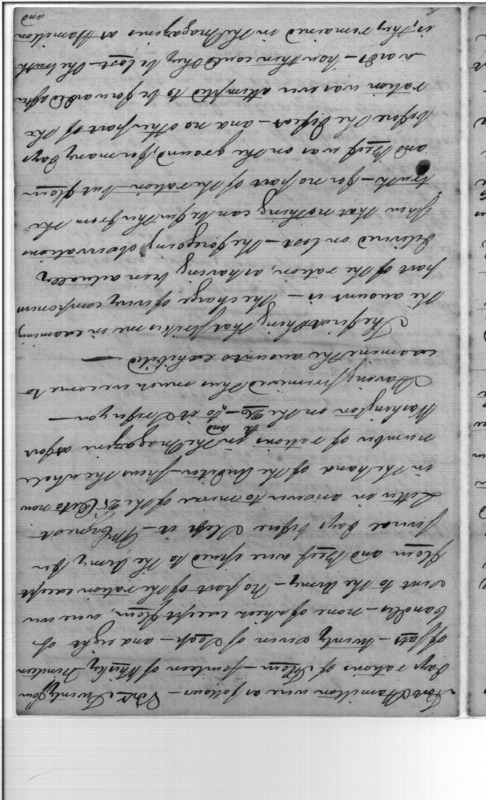 Fort Hamilton were as follows — Viz. Twenty four
Days rations of Flour — fourteen of Whisky, Nineteen
of Salt — twenty seven of Soap — and eight of
Candles — none of which except flour, were ever
sent to the Army — No part of the ration except
flour and Beef were issued to the Army, for
several Days before
Letter in answer to mine of the
in the hand of the Auditor — shews the whole
number of rations in the Magazine at fort
Washington on the
and
Having premised thus much we come to
examine the accounts exhibited —
The first thing that strikes me in examining
the account is — the charge of every component
part of the ration, as having been actually
delivered or lost — The foregoing observations
shew that nothing can be further from the
truth — for no part of the ration — but flour
and Beef was on the ground, for many Days
before the Defeat — and no other part of the
ration was ever attempted to be forwarded after
wards — how then could they be lost — the truth
is, they remained in the Magazines at Hamilton
and